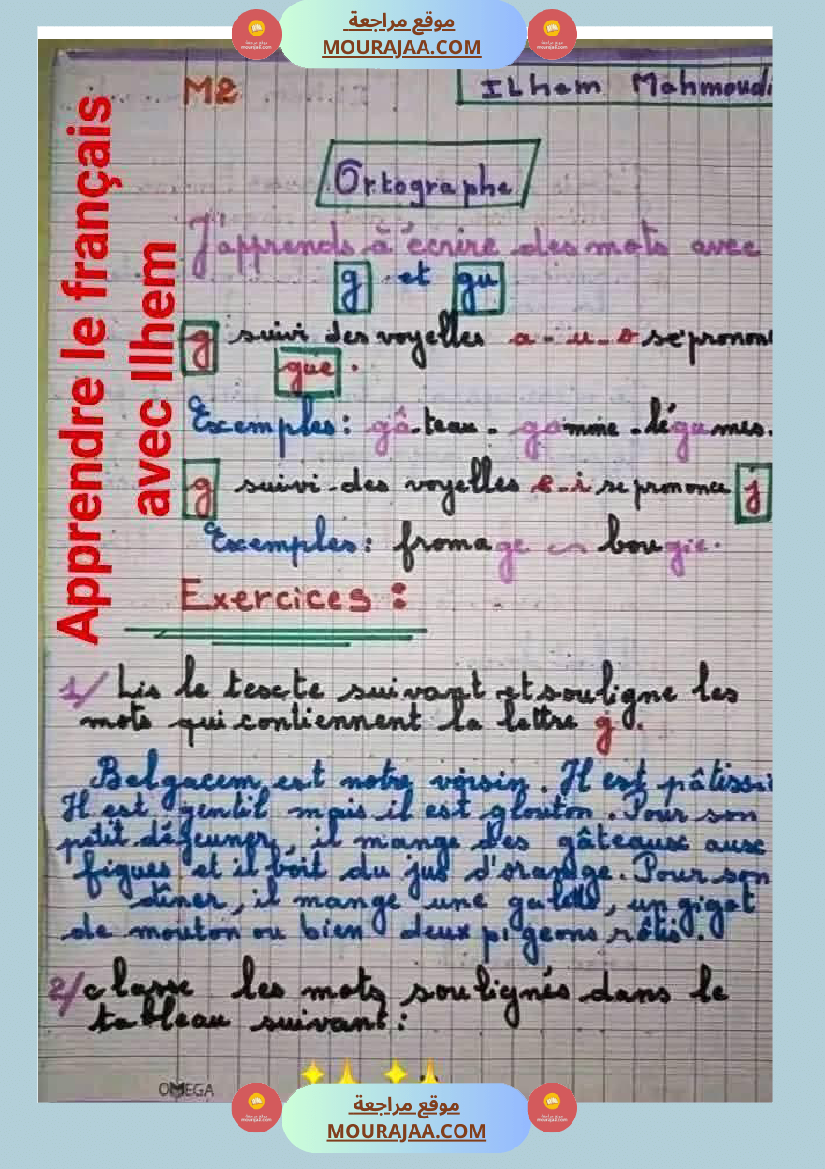 موقع مراجعة
MOURAJAA.COM
Apprendre le français
avec Ilhem
M2
ILhem Mahmoudi
Ortographe
J'apprends à écrire des mots avec
g et gu
g suivi des voyelles a - u - o se prononc
gue.
Exemples: gâ-teau - gomme - légumes.
g suivi des voyelles e - i se prononce j
Exemples: fromage bougie.
Exercices:
1/ Lis le texte suivant et souligne les
mots qui contiennent la lettre g.
Belgacem est notre voisin. Il est pâtissi
Il est gentil mais il est glouton. Pour son
petit déjeuner, il mange des gâteaux aux
figues et il boit du jus d'orange. Pour son
dîner, il mange une galette, un gigot
de mouton ou bien deux pigeons rôtis.
2/ classe les mots soulignés dans le
tableau suivant:
OMEGA
موقع مراجعة
MOURAJAA.COM